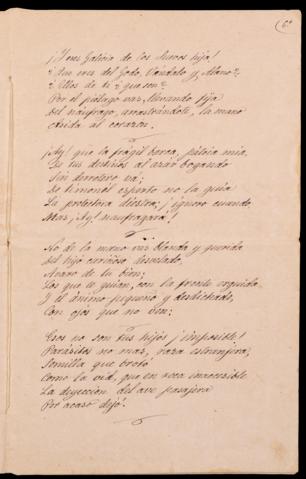 6º
¡Y eres Galicia de los Suevos hija!
¿Que eres del Godo, Vándalo y Alano?
¿Ellos de ti que son?
Por el piélago vas, llevando fija
Del náufrago, arrastrándote, la mano
Asida al corazon.
¡Ay! que la frágil barca, pátria mia,
En tus destinos al azar bogando
Sin derrotero vá;
De timonel esperto no la guia
La protectora diestra; ¡ignoro cuando
Mas, ¡Ay! naufragará!
No de la mano vas blanda y querida
Del hijo cariñoso
Avaro de tu bien;
Los que te guian, con la frente erguida
Y el ánimo pequeño y desdichado,
Con ojos que no ven:
Esos no son tus hijos ¡imposible!
Parásitos no mas, raza estranjera,
Semilla que brotó
Como la vid, que en roca inaccesible
La deyeccion del ave pasajera
Por acaso dejó.